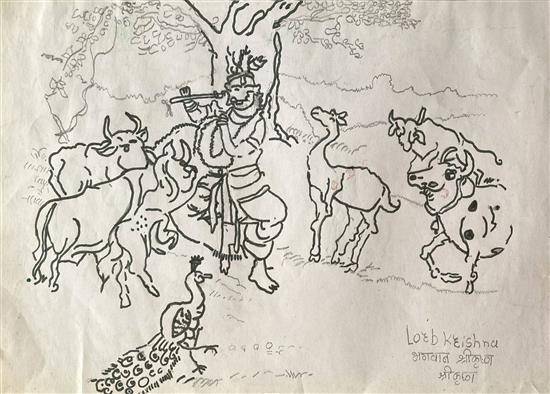 Lord Krishna
भगवान श्रीकृष्ण
श्रीकृष्ण